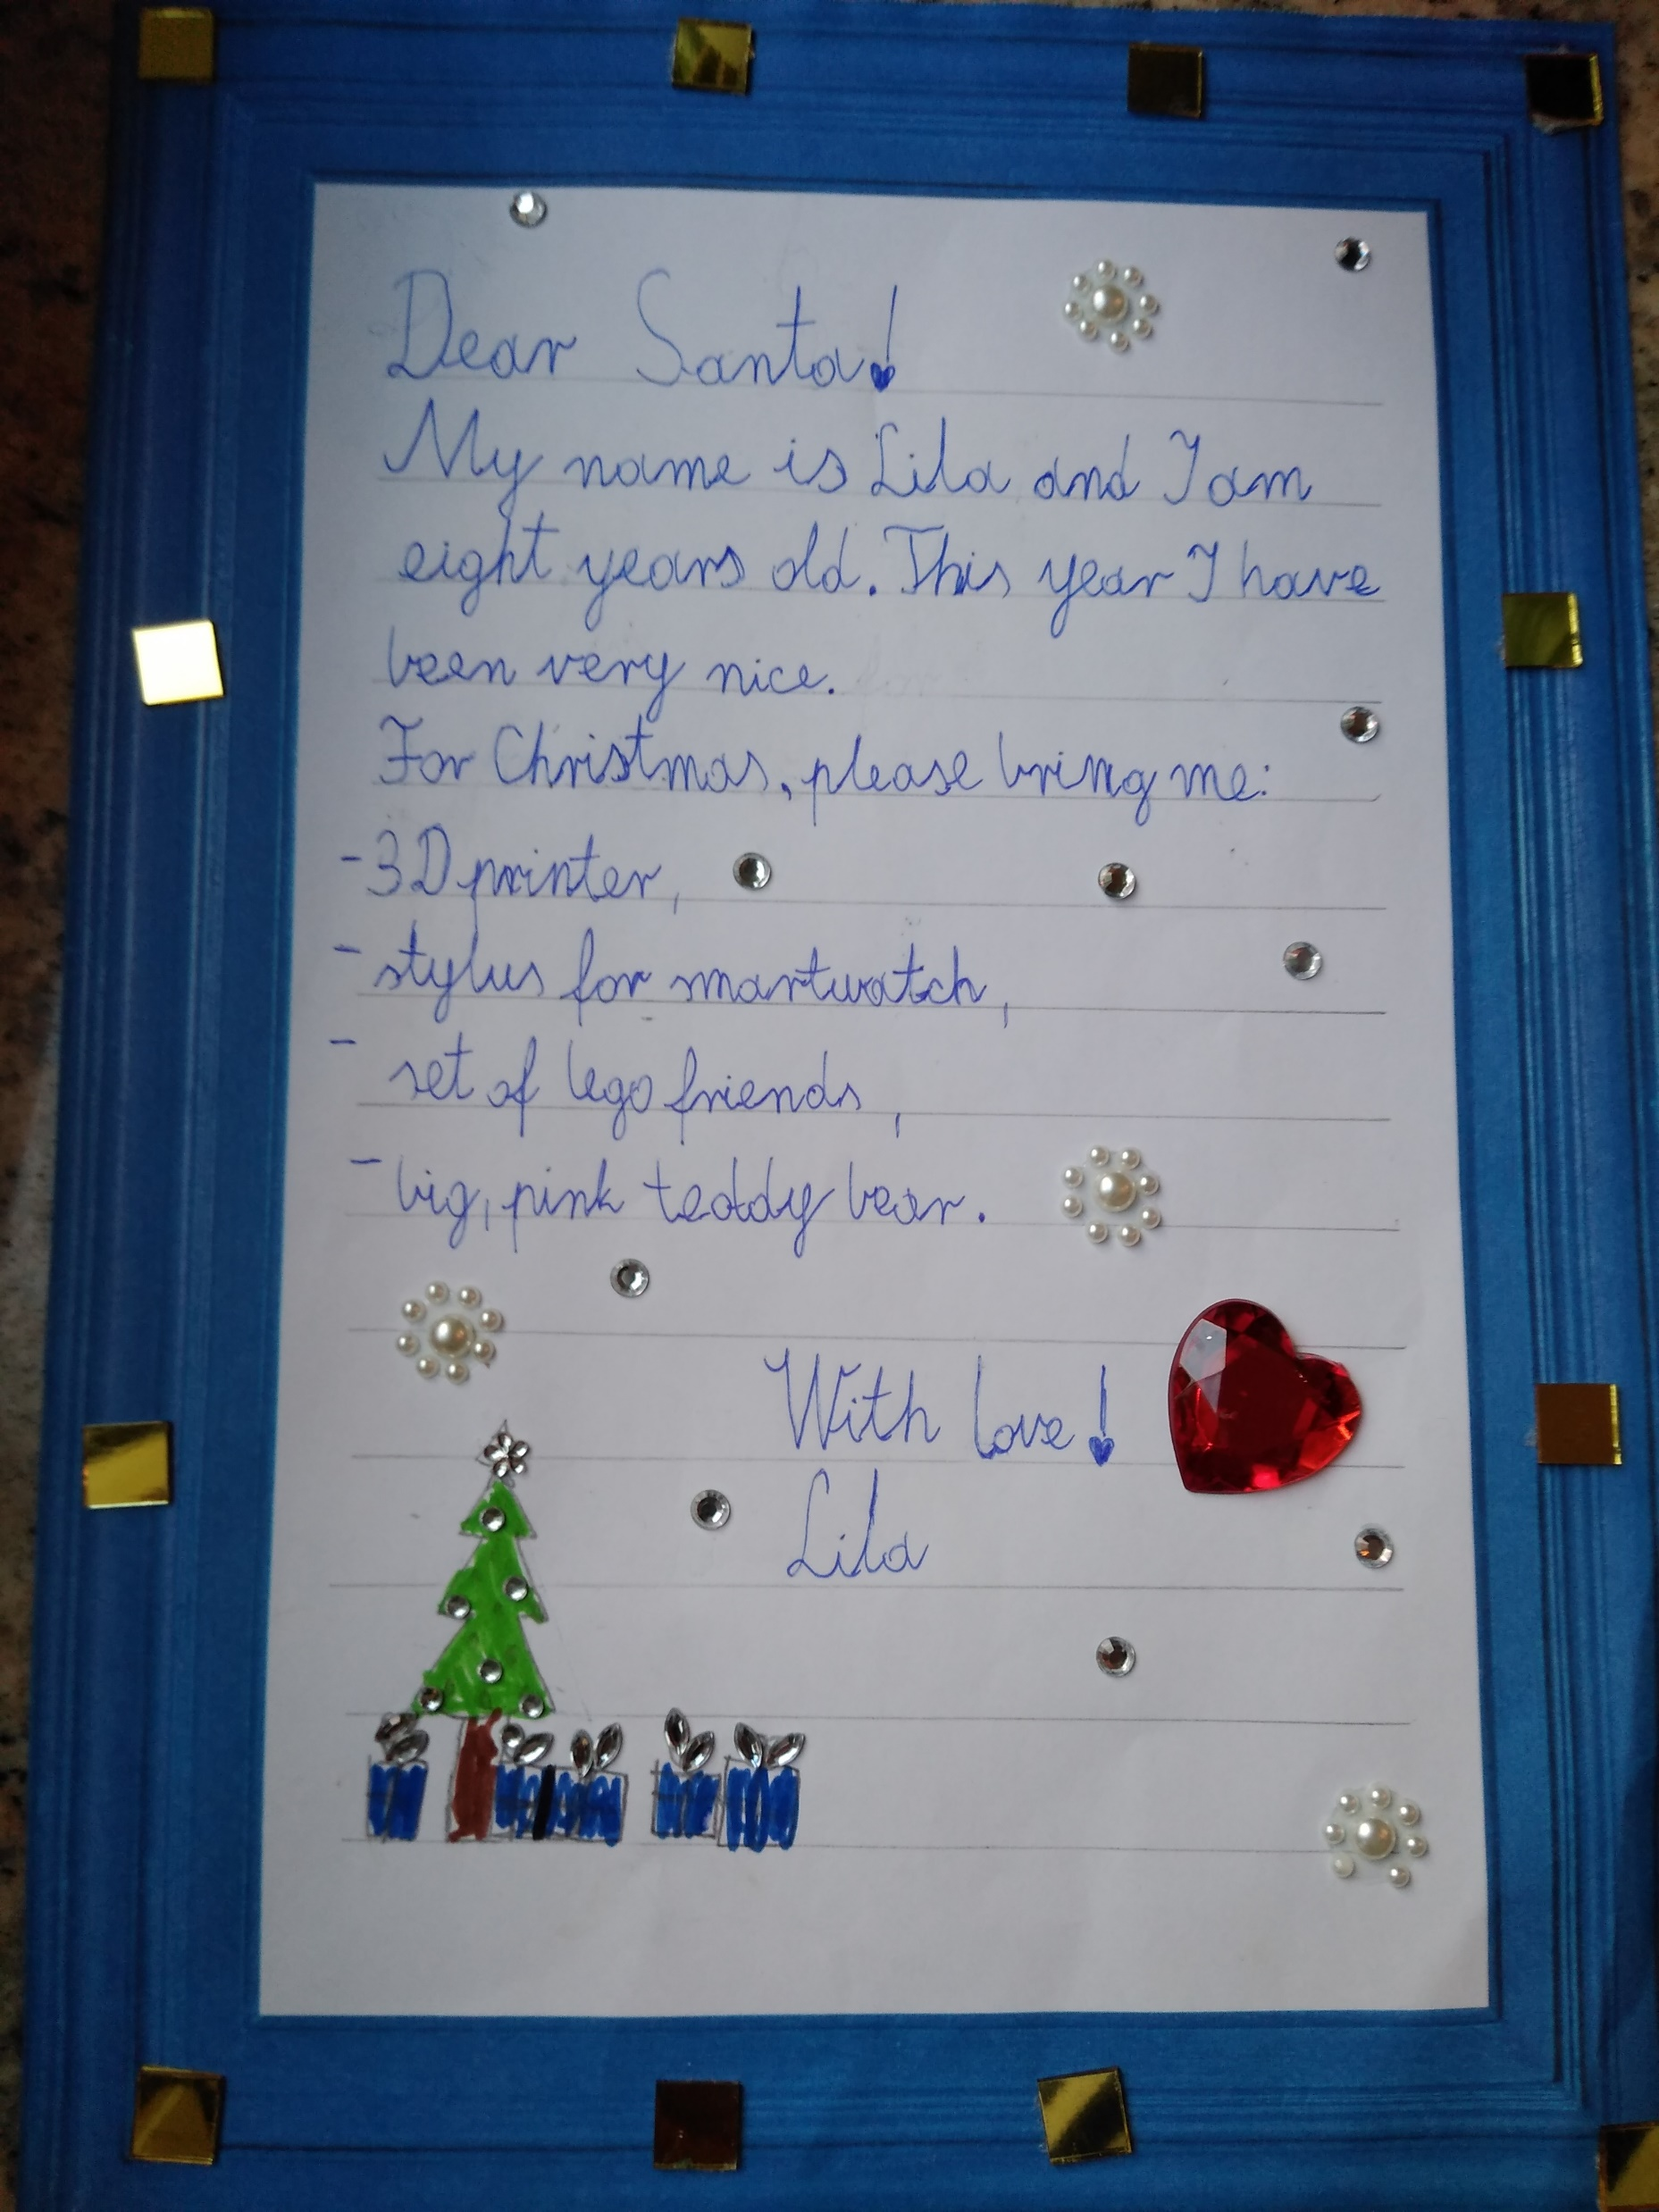 Dear Santa!
My name is Lila and I am
eight years old. This year I have
been very nice.
For Christmas, please bring me:
-3D printer,
- stylus for smartwatch,
- set of lego friends,
- big, pink teddy bear.
With love!
Lila